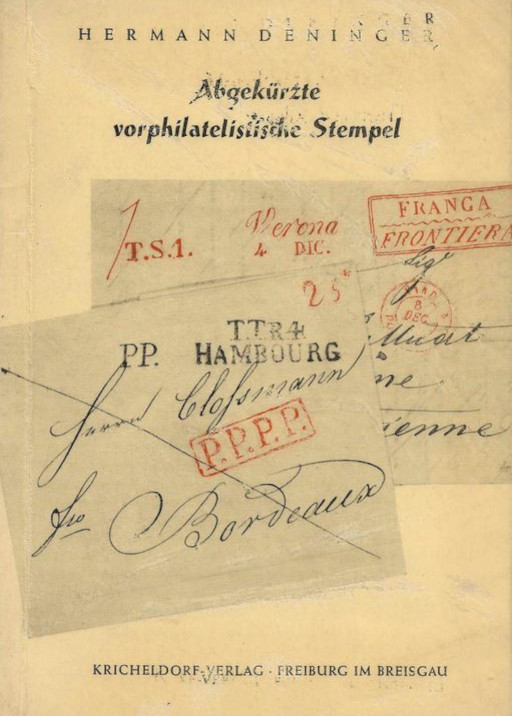 HERMANN DENINGER
Abgekürzte
vorphilatelistische Stempel
FRANCA
FRONTIERA
Verona
4 DIC.
T.S.1.
25
8
DEC.
T.T.R4
PP. HAMBOURG
Herrn Clossmann
P.P.P.P.
fco
Bordeaux
KRICHELDORF-VERLAG · FREIBURG IM BREISGAU